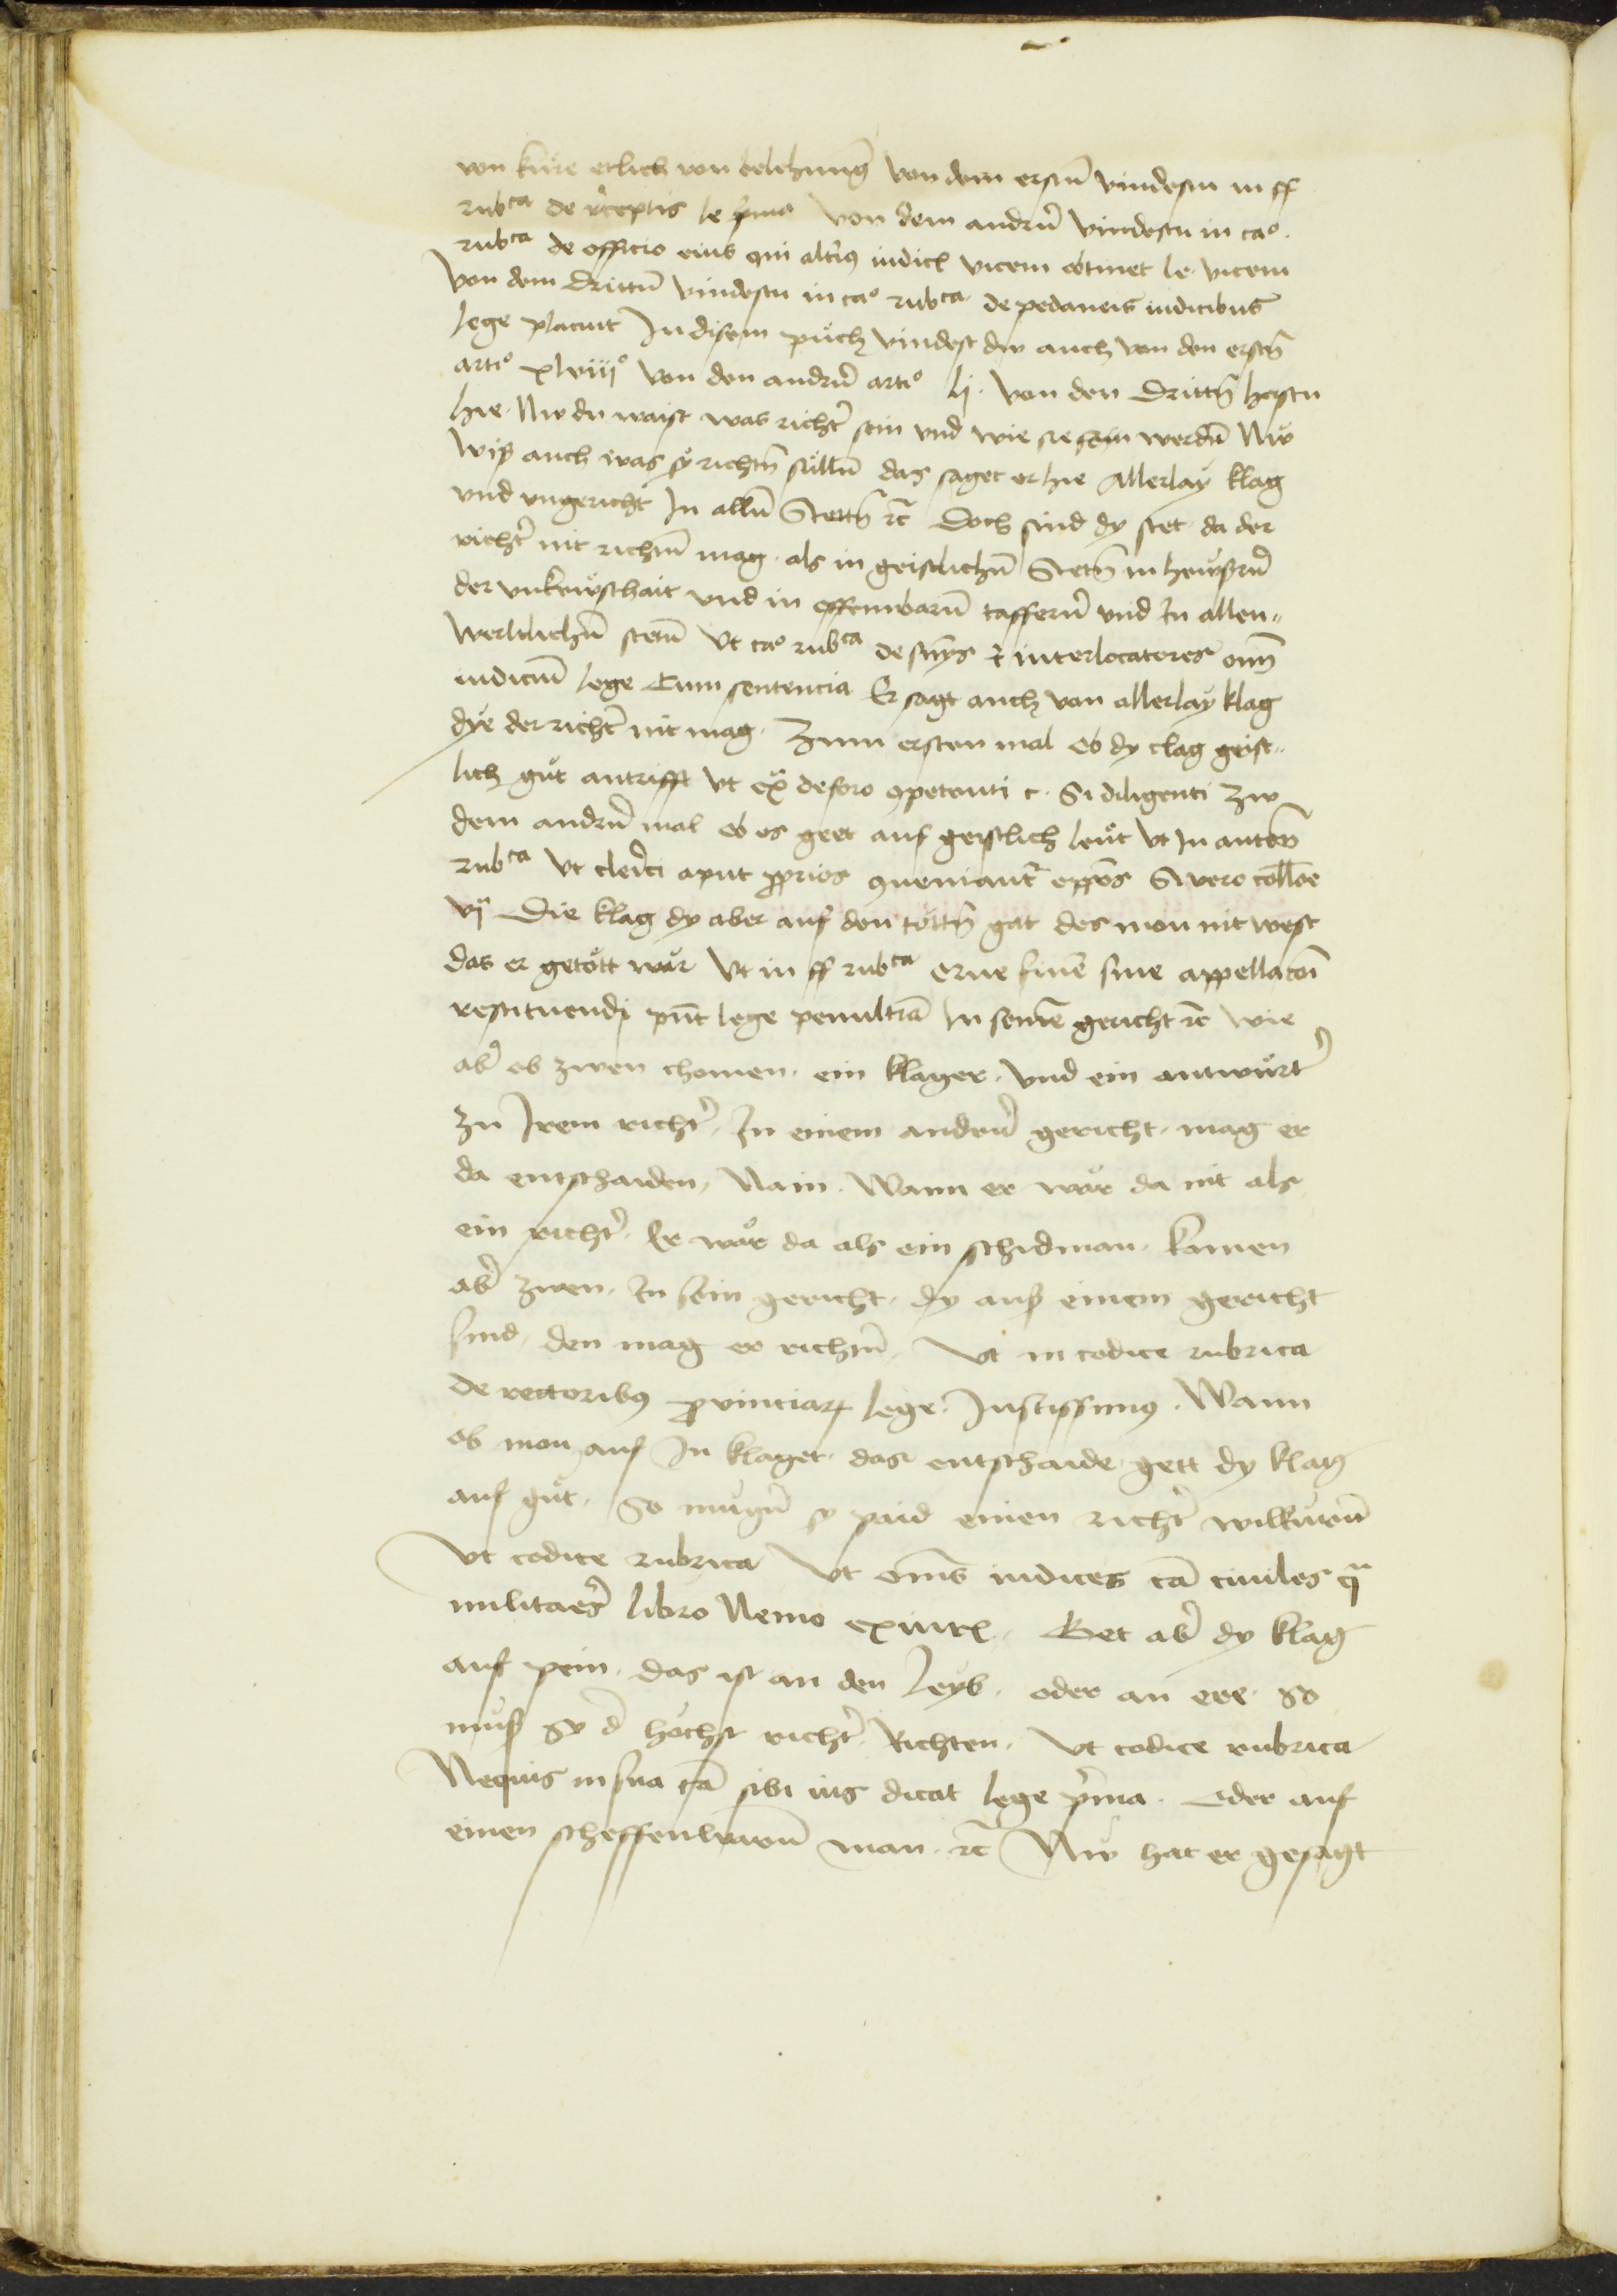 von kure etlich von belehnung von dem erstn̄ vindestu in ff
rubca de receptis le prima von dem andrn̄ vindestu in cao.
rubca de officio eius qui alterius iudicis vicem obtinet le. vicem
von dem drittn̄ vindestu in cao rubca de pedaneis iudicibus
lege placuit In disem puͦch vindest dw auch von den erstn̄
artio xlviijo von den andrn̄ artio lj. von den drittn̄ herstu
hie. Nw du waist was richt̄ sein vnd wie sie sein werdn̄ Nw
wiß auch was sy richtn̄ sülln̄ das saget er hie Allerlay klag
vnd vngericht In alln̄ Stettn̄ rc̄ Doch sind dy stet da der
richt̄ nit richtn̄ mag. als in geistlichn̄ Stetn̄ in hewsern̄
der vnkewschait vnd in offenwarn̄ taffern̄ vnd In allen
werltlichn̄ stetn̄ Vt cao rubca de sn̄ys et interlocatores om̄
iudicum̄ lege Cum sentencia Er sagt auch von allerlay klag
dye der richt̄ nit mag. Zum ersten mal Ob dy clag geist-
lich guͦt antrifft Vt ex̄ de foro ꝯpetenti c. Si diligenti Zw
dem andrn̄ mal ob es geet auf geistlich leut Vt In auten̄
rubca Vt clerici aput proprios ꝯueniantr̄ ep̄os Si vero colloe
vij Die klag dy aber auf den tottn̄ gat des mon nit west
das er getött wär Vt in ff rubca erne sine siue appellacoi
restituendi pn̄t lege penultia In seinē gericht rc̄ wie
ab̄ ob zwen chomen. ein klager. vnd ein antwurt̄
zu Irem richt̄. In einem andrn̄ gericht. mag er
da entschaiden, Nain. Wann er wär da nit als
ein richt̄. Er wär da als ein schidman. komen
ab̄ zwen. In sein gericht. dy auß einem gericht
sind, den mag er richtn̄. Vt in codice rubrica
de rectoribus prouinciarum lege. Iustissimus. Wann
ob mon auf In klaget. das entschaide. gett dy klag
auf guͦt. So mugn̄ sy paid einen richt̄ willkurn̄
Vt codice rubrica Vt om̄s iudices tā ciuiles q̄
militares̄ libro Nemo exinitis. Get ab̄ dy klag
auf pein. das ist an den Leyb. oder an ere. So
muͦß Sy d̄ höchst richt̄. Richten. Vt codice rubrica
Nequis in sua cā sibi ius dicat lege prima. Oder auf
einen scheffenwarn̄ man. rc̄ Nw hat er gesagt